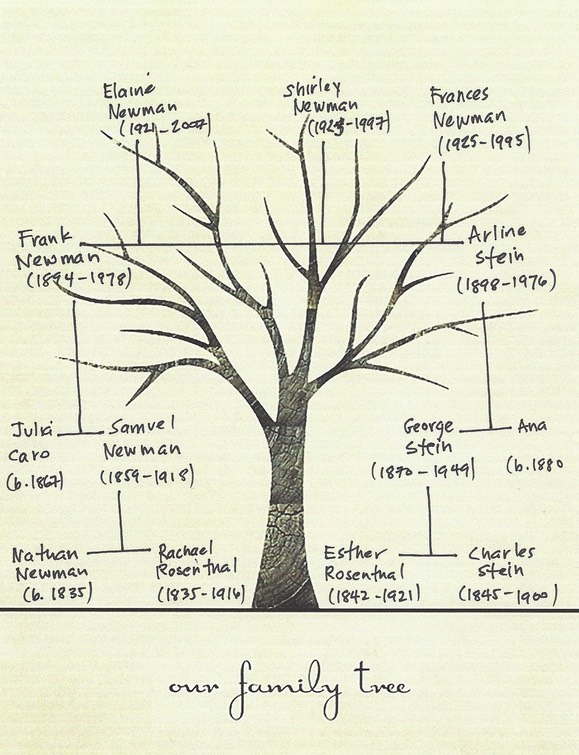 Elaine
Newman
(1921-2007)
Shirley
Newman
(1923-1997)
Frances
Newman
(1925-1995)
Frank
Newman
(1894-1978)
Arline
Stein
(1898-1976)
Julia
Caro
(b.1867)
Samuel
Newman
(1859-1918)
George
Stein
(1870-1949)
Ana
(b.1880
Nathan
Newman
(b. 1835)
Rachael
Rosenthal
(1835-1916)
Esther
Rosenthal
(1842-1921)
Charles
Stein
(1845-1900)
our family tree